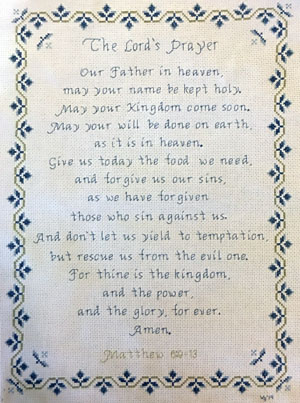 The Lord's Prayer
Our Father in heaven,
may your name be kept holy.
May your Kingdom come soon.
May your will be done on earth,
as it is in heaven.
Give us today the food we need,
and forgive us our sins,
as we have forgiven
those who sin against us.
And don't let us yield to temptation,
but rescue us from the evil one.
For thine is the kingdom,
and the power,
and the glory, for ever.
Amen.
Matthew 6:9-13